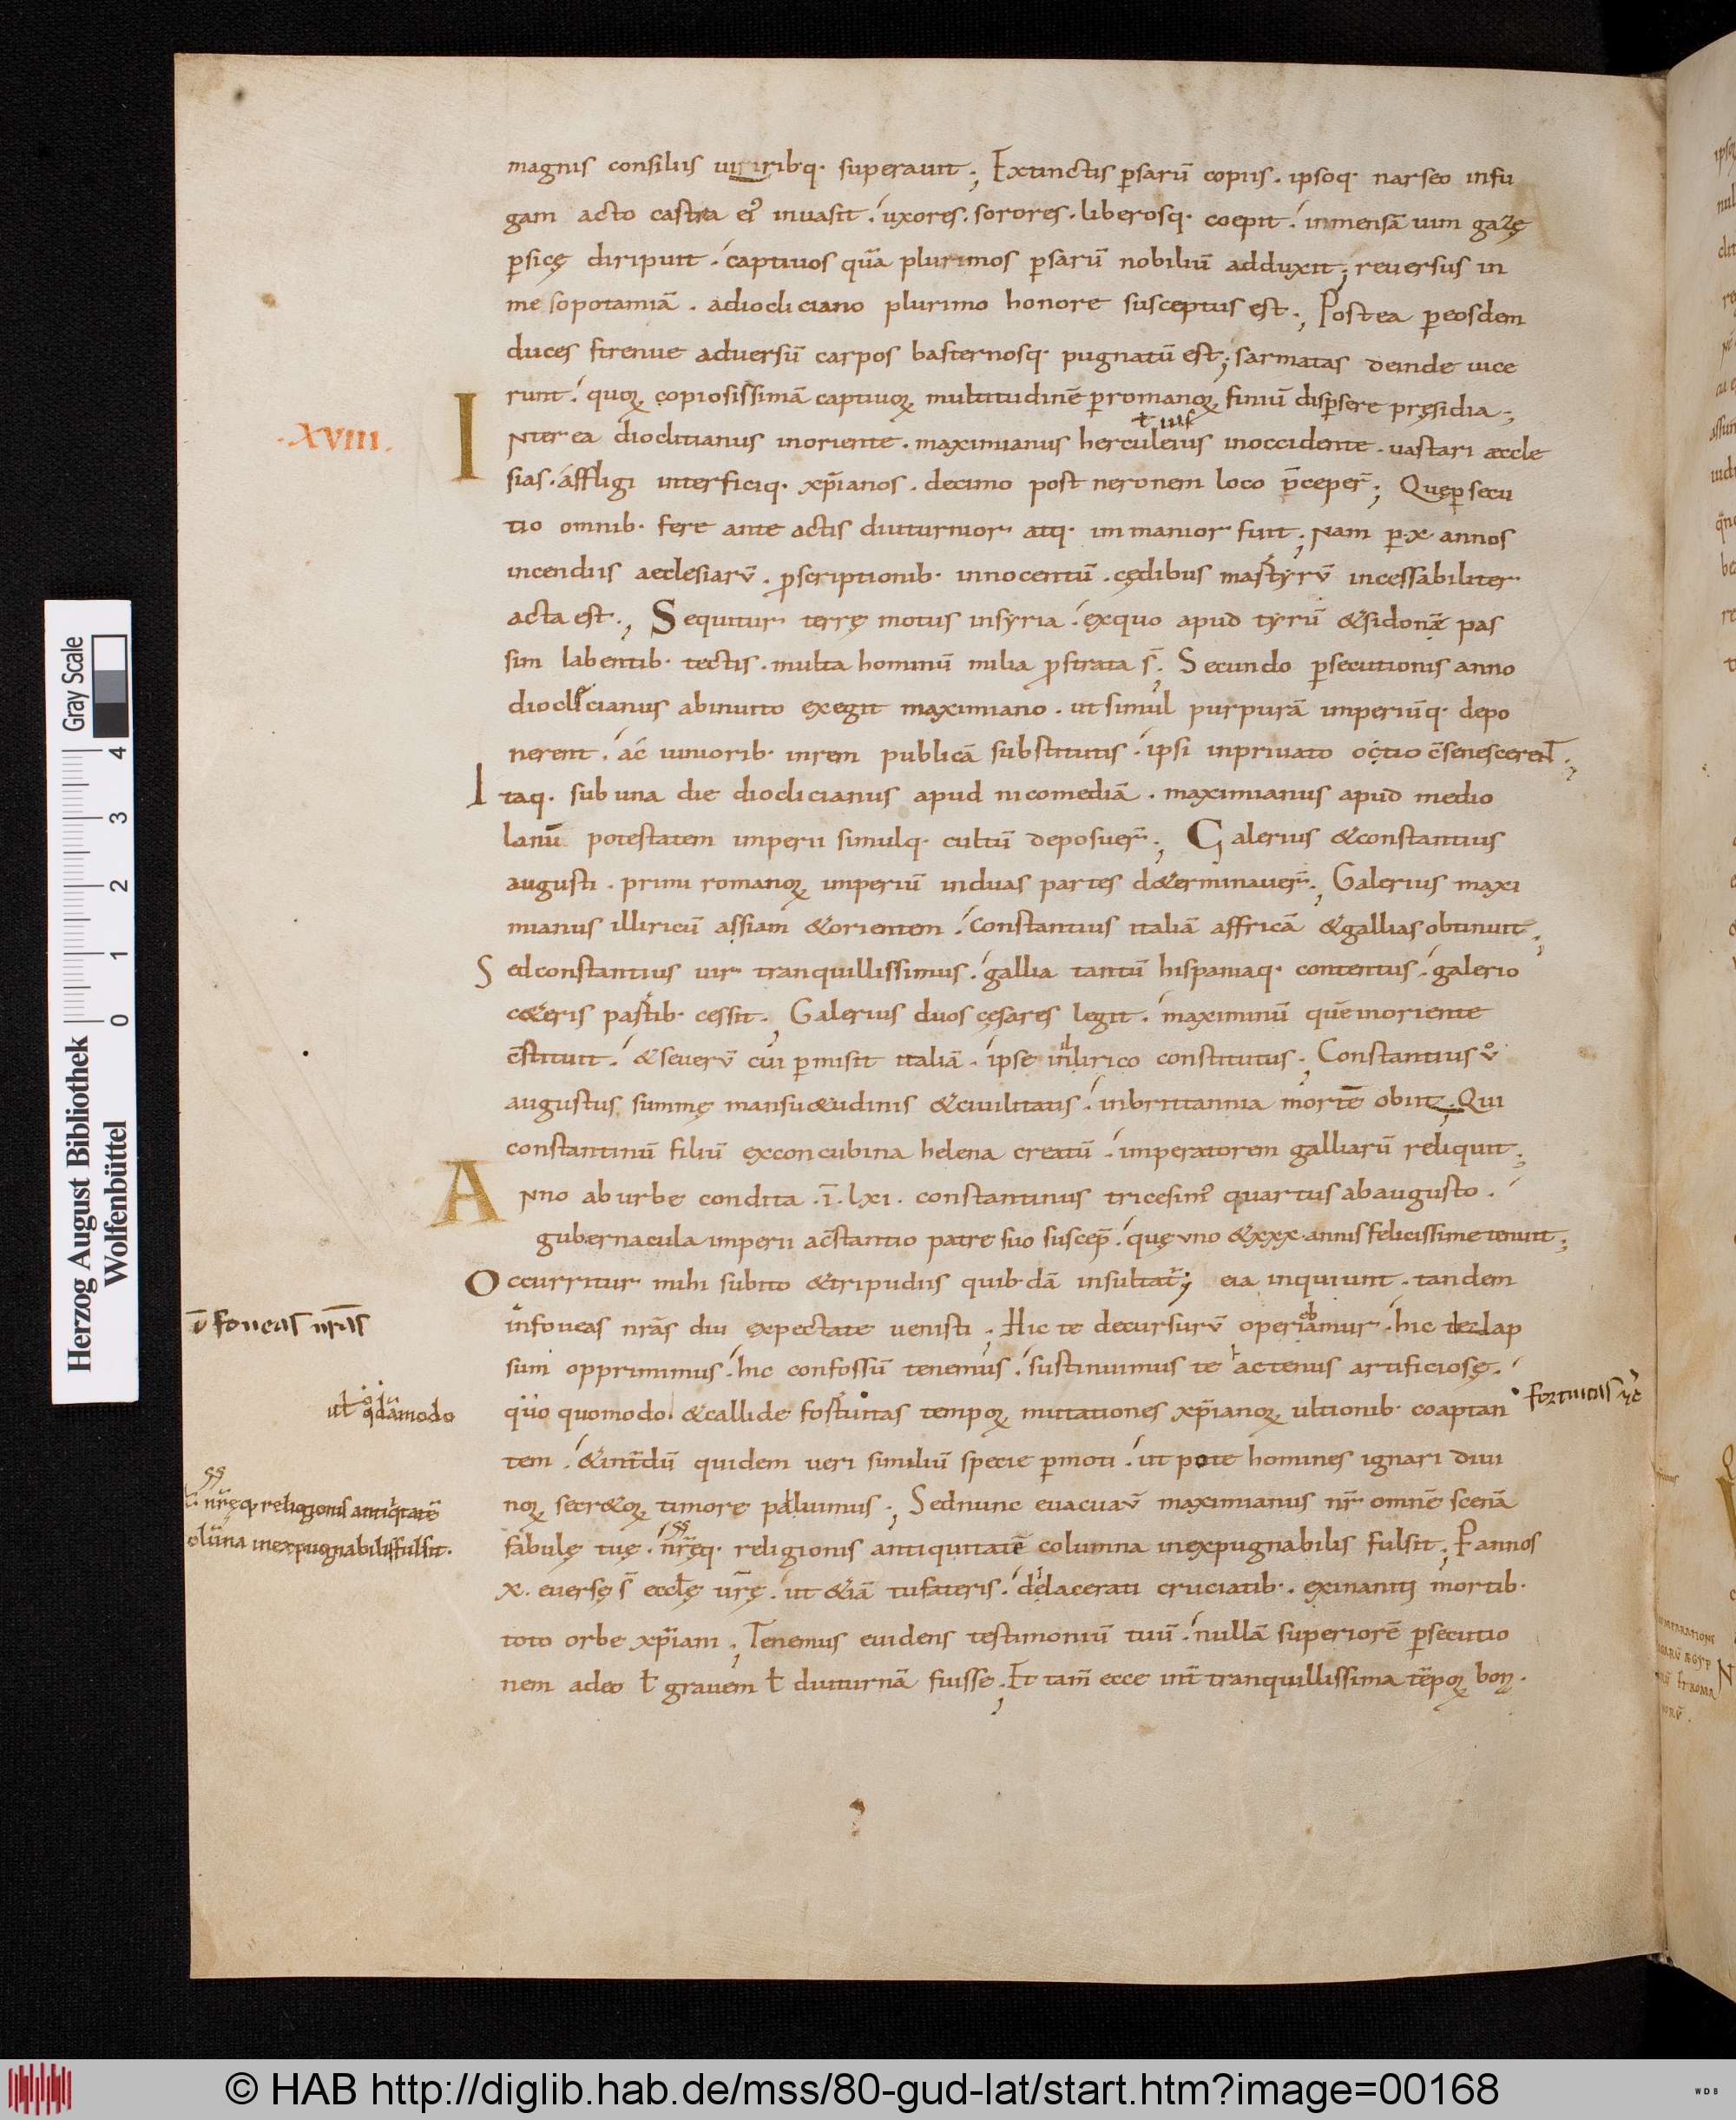 magnis consiliis uiriribq· superauit ; Extinctis ꝑsarū copiis . ipsoq· narseo in fu
gam acto castra ei᾽ inuasit . uxores . sorores . liberosq· coepit . inmensā uim gazę
ꝑsicę diripuit . captiuos quā plurimos ꝑsarū nobiliū adduxit ; reuersus in
mesopotamiā . adiocliciano plurimo honore susceptus est ; Postea ꝑeosdem
duces strenue aduersū carpos basternosq· pugnatū est ; sarmatas deinde uice
runt . quoꝝ copiosissimā captiuoꝝ multitudinē ꝑromanoꝝ finiū disꝑsere pręsidia ;
·XVIII·
INterea dioclitianus inoriente . maximianus herculeius inoccidente . uastari aeccle
sias . affligi interficiq· xp̄ianos . decimo post neronem loco p̄ceper̄ ; Quęꝑsecu
tio omnib· fere ante actis diuturnior atq· immanior fuit ; Nam ꝑ·x· annos
incendiis aecclesiarū . ꝓscriptionib· innocentū . cędibus martyrū incessabiliter
acta est ; Sequitur terrę motus insyria . exquo apud tyrū &sidonā pas
sim labentib· tectis . multa hominū milia ꝓstrata s̄ ; Secundo ꝑsecutionis anno
dioclicianus abinuito exegit maximiano . ut simul purpurā imperiūq· depo
nerent . ac iunioribꝰ inrem publicā substitutis . ipsi inpriuato octio c̄senescerent ;
Itaq· sub una die dioclicianus apud nicomediā . maximianus apud medio
lanū potestatem imperii simulq· cultū deposuer̄ ; Galerius &constantius
augusti . primi romanoꝝ imperiū induas partes d&erminauer̄ ; Galerius maxi
mianus illiricū assiam &orientem . constantius italiā affricā &gallias obtinuit ;
Sed constantius uir tranquillissimus . gallia tantū hispaniaq· contentus . galerio
c&eris partib· cessit ; Galerius duos cęsares legit . maximinū quē inoriente
c̄stituit . &seuerū cui ꝑmisit italiā . ipse inlirico constitutus ; Constantius uͦ
augustus summę mansu&udinis &ciuilitatis . inbrittannia mortē obiit ; Qui
constantinū filiū exconcubina helena creatū . imperatorem galliarū reliquit ;
ANno ab urbe condita ·ī·lxi· constantinus tricesim᾽ quartus abaugusto .
gubernacula imperii ac̄stantio patre suo suscep̄ . quę uno &xxx· annis felicissime tenuit ;
Occurritur mihi subito &tripudiis quib·dā insultat̄ ; eia inquiunt . tandem
infoueas nr̄as diu expectate uenisti ; Hic te decursurū operiebamur . hic te lap
sum opprimimus . hic confossū tenemus . sustinuimus te actenus artificiosę .
quo quomodo &callide fortuitas tempoꝝ mutationes xp̄ianoꝝ ultionib· coaptan
tem . &int̄dū quidem ueri similiū specie ꝑmoti . ut pote homines ignari diui
noꝝ secr&oꝝ timore palluimus ; Sednunc euacuauͮ maximianus nr̄ omnē scenā
fabulę tuę . nr̄ęq· religionis antiquitatē columna inexpugnabilis fulsit ; P annos
x· euersę s̄ eccl̄ę ur̄ę . ut &iā tu fateris . dilacerati cruciatib· . exinaniti mortib·
toto orbe xp̄iani ; Tenemus euidens testimoniū tuū . nullā superiorē ꝑsecutio
nem adeo ł grauem ł diuturnā fuisse ; Et tam̄ ecce int̄ tranquillissima tēpoꝝ bonꝝ .
ł ius
foueas nr̄as
uł qdāmodo
fortuitas
nr̄ęq· religionis antiq̄tatē
colūna inexpugnabilis fulsit .
Gray Scale
4 3 2 1 0
Herzog August Bibliothek
Wolfenbüttel
© HAB http://diglib.hab.de/mss/80-gud-lat/start.htm?image=00168
WDB